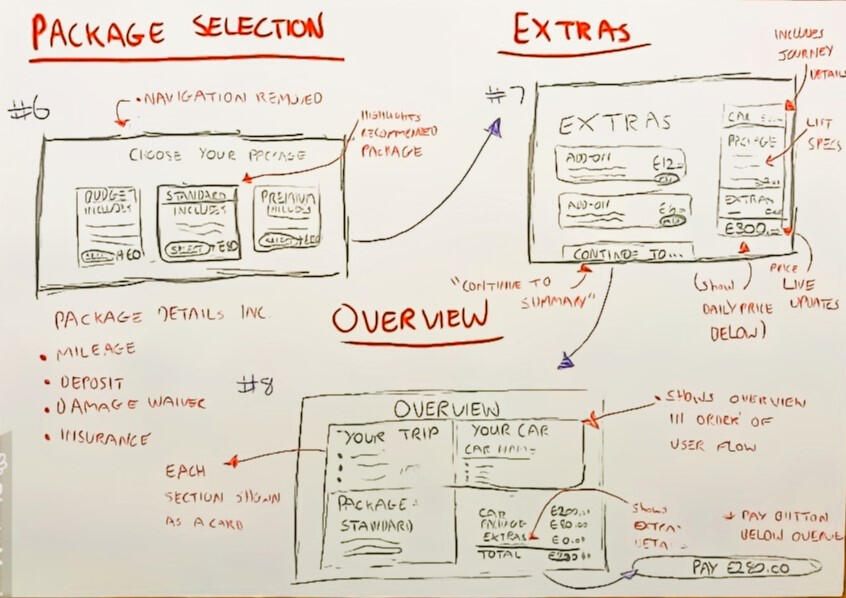 PACKAGE SELECTION
#6
• NAVIGATION REMOVED
HIGHLIGHTS
RECOMMENDED
PACKAGE
CHOOSE YOUR PACKAGE
BUDGET
INCLUDES
+£0
STANDARD
INCLUDES
SELECT
PREMIUM
INCLUDES
SELECT
PACKAGE DETAILS INC.
• MILEAGE
• DEPOSIT
• DAMAGE WAIVER
• INSURANCE
EXTRAS
#7
INCLUDES
JOURNEY
DETAILS
LIST
SPECS
EXTRAS
ADD-ON
£12
ADD-ON
CONTINUE TO...
CAR
PACKAGE
EXTRAS
£300.
"CONTINUE TO
SUMMARY"
(SHOW
DAILY PRICE
BELOW)
PRICE
LIVE
UPDATES
OVERVIEW
#8
OVERVIEW
YOUR TRIP
YOUR CAR
CAR NAME
PACKAGE:
STANDARD
CAR £200.00
PACKAGE £80.00
EXTRAS £0.00
TOTAL £280.00
EACH
SECTION SHOWN
AS A CARD
• SHOWS OVERVIEW
IN ORDER OF
USER FLOW
SHOWS
EXTRA
DETAILS
PAY BUTTON
BELOW
PAY £280.00